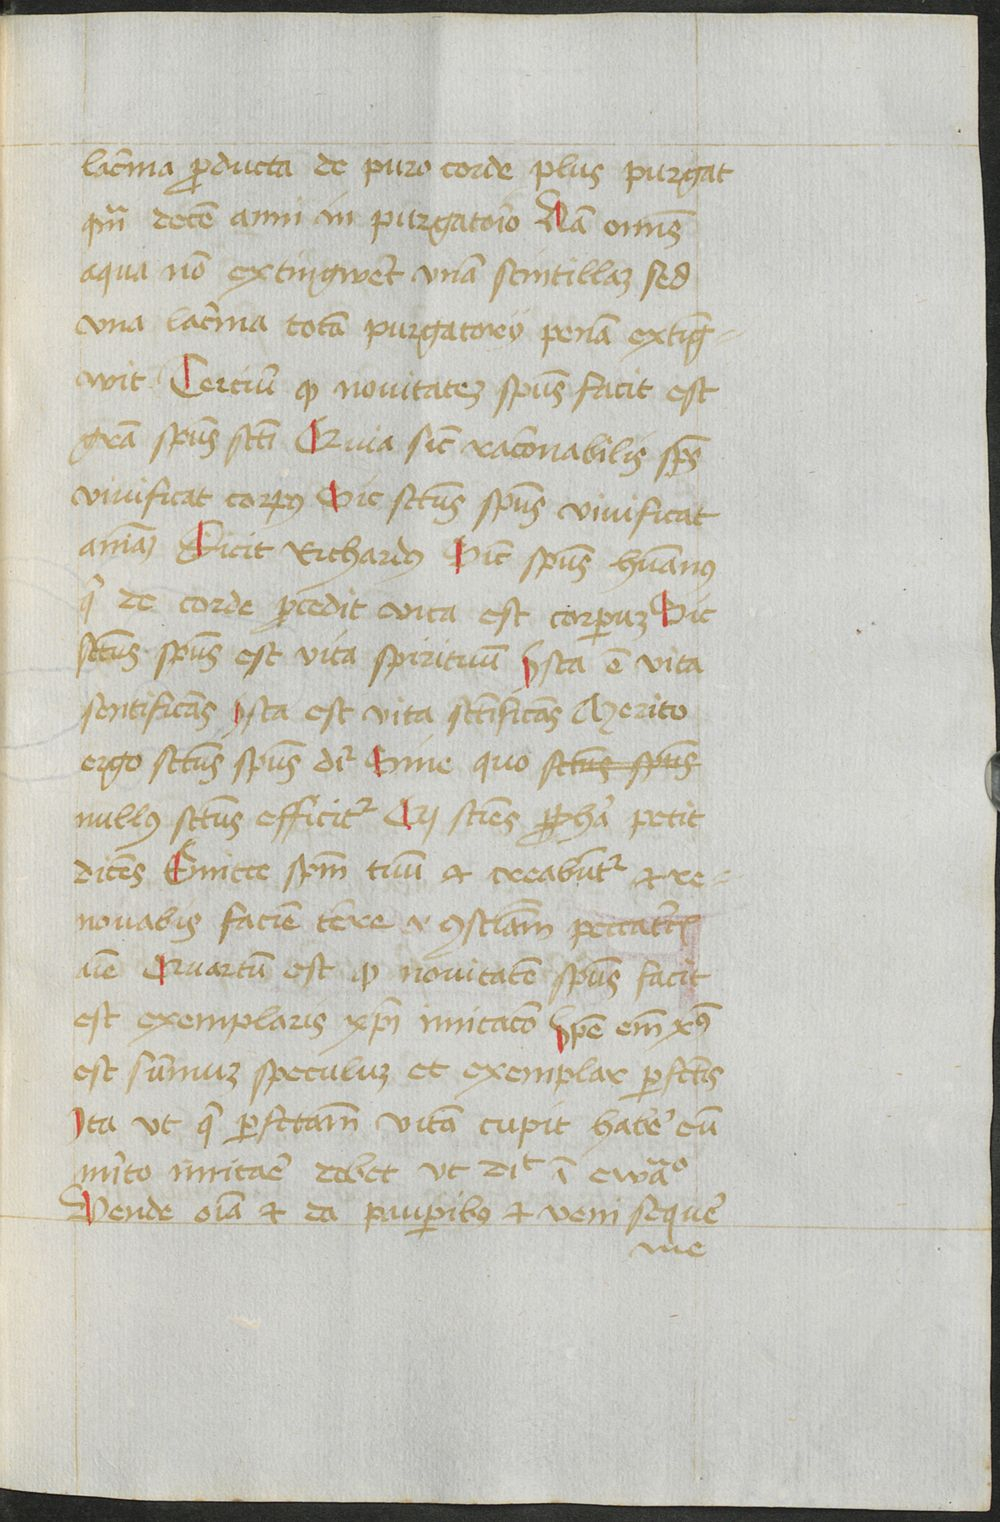 lac̅ma p̱ducta de puro corde plus purgat
qm̅ decē anni in purgatoīo Nā omīs
aqua nō extingweꝛ̄t vnā scintillaꝫ sed
vna lac̅ma totā purgatorij penā exting=
wit Terciū qꝫ nouitateꝫ spūs facit est
grā spūs sctī Quia sic̄ racōnabilis spūs
viuificat corpꝰ Sic sctūs spūs viuificat
animā Dicit Richardꝰ Sic̄ spūs hūanꝰ
q̄ de corde p̱cedit vita est corpm̱ Sic
sctūs spūs est vita spirituū Ista ē vita
sentificās Ista est vita sctīficās Merito
ergo sctūs spūs dr̄ Sine quo sctūs spūs
nullꝰ sctūs efficitᷣ Qꝫ sciēs p̱phā petit
dicēs Emitte spm̄ tuū ⁊ creabūtᷣ ⁊ re=
nouabis faciē terre ⁊ ꝯsciam̄ peccatꝛ̄ꝭ
aīe Quartū est qꝫ nouitatē spūs facit
est exemplaris xpī imitacō Ip̄e em̄ xp̄s
est sūmuꝫ speculuꝫ et exemplar p̱fctīs
Ita vt q̄ p̱fctam̄ vitā cupit habē eū
mīto imitaē debet vt dit̄ ī ewāº
Vende oīa ⁊ da paup̱ibꝰ ⁊ veni sequē
me